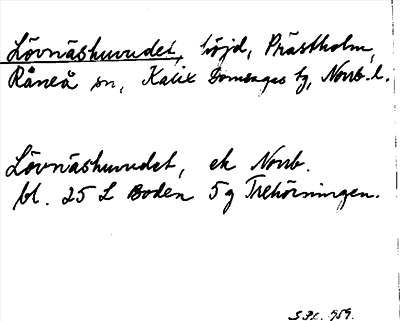 Lövnäshuvudet, höjd, Prästholm,
Råneå sn, Kalix Domsagas tg, Norrb. l.
Lövnäshuvudet, ek Norrb.
bl. 25 L Boden 5 g Trehörningen.
1959.